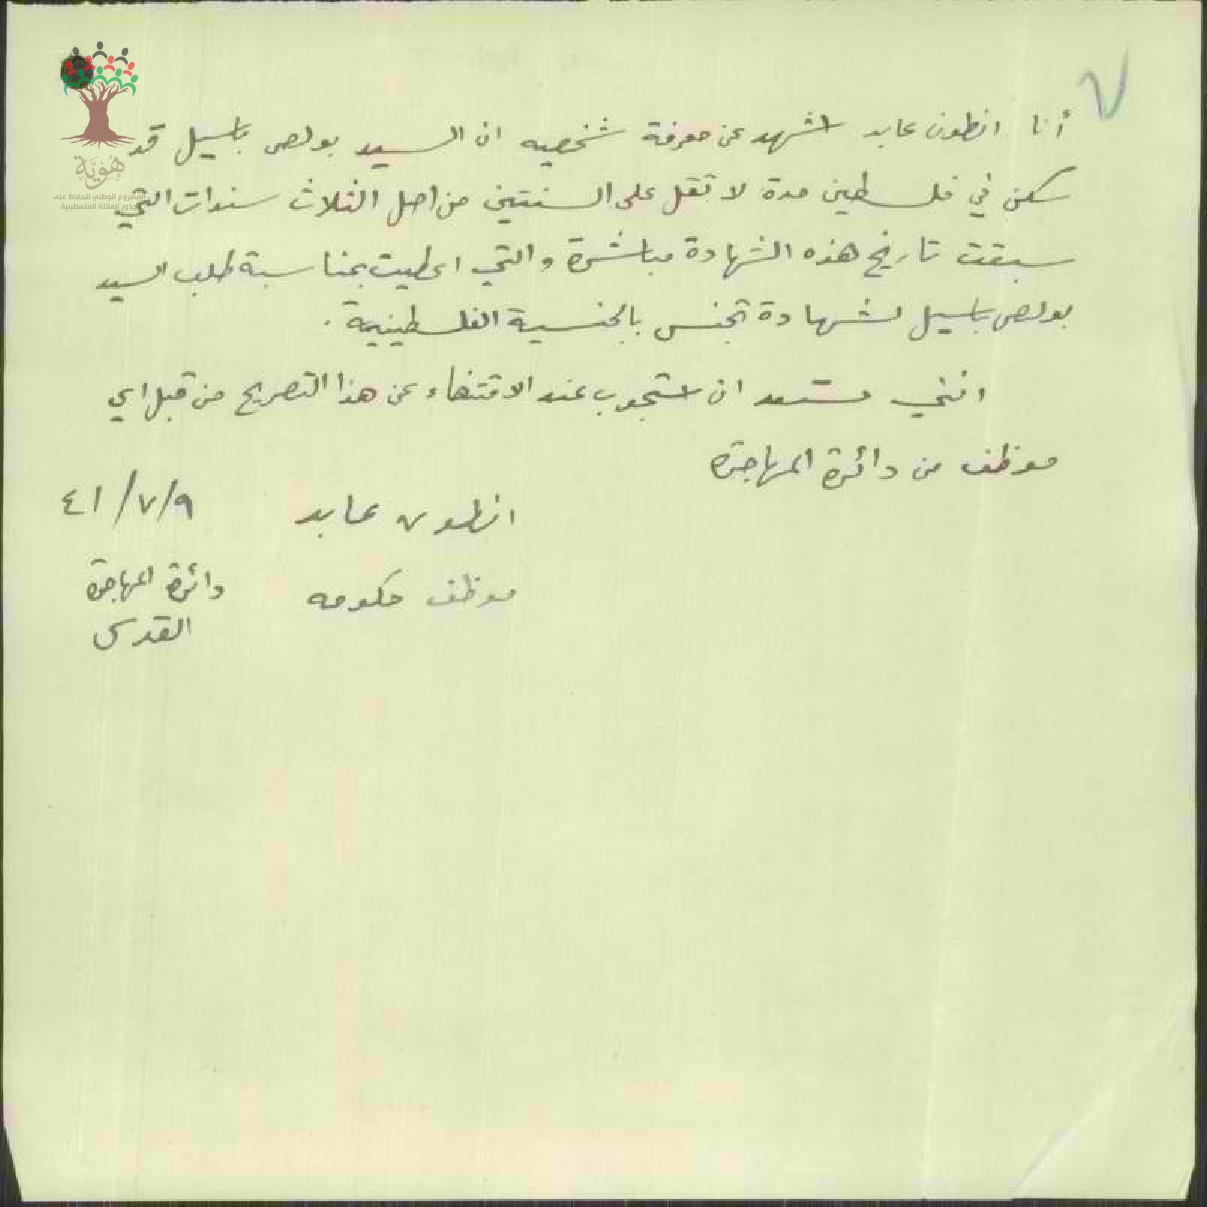 أنا انطون عابد اشهد عن معرفة شخصيه ان السيد بولص باسيل قد
سكن في فلسطين مدة لا تقل على السنتين من اصل الثلاث سنوات التي
سبقت تاريخ هذه الشهادة مباشرة والتي اعطيت بمناسبة طلب السيد
بولص باسيل لشهادة تجنس بالجنسية الفلسطينية .
انني مستعد ان استجوب عند الاقتضاء عن هذا التصريح من قبل اي
موظف من دائرة المهاجرة
انطون عابد ٤١/٧/٩
موظف حكومه دائرة المهاجرة
القدس
هُوِيَّة
المشروع الوطني للحفاظ على
جذور العائلة الفلسطينية